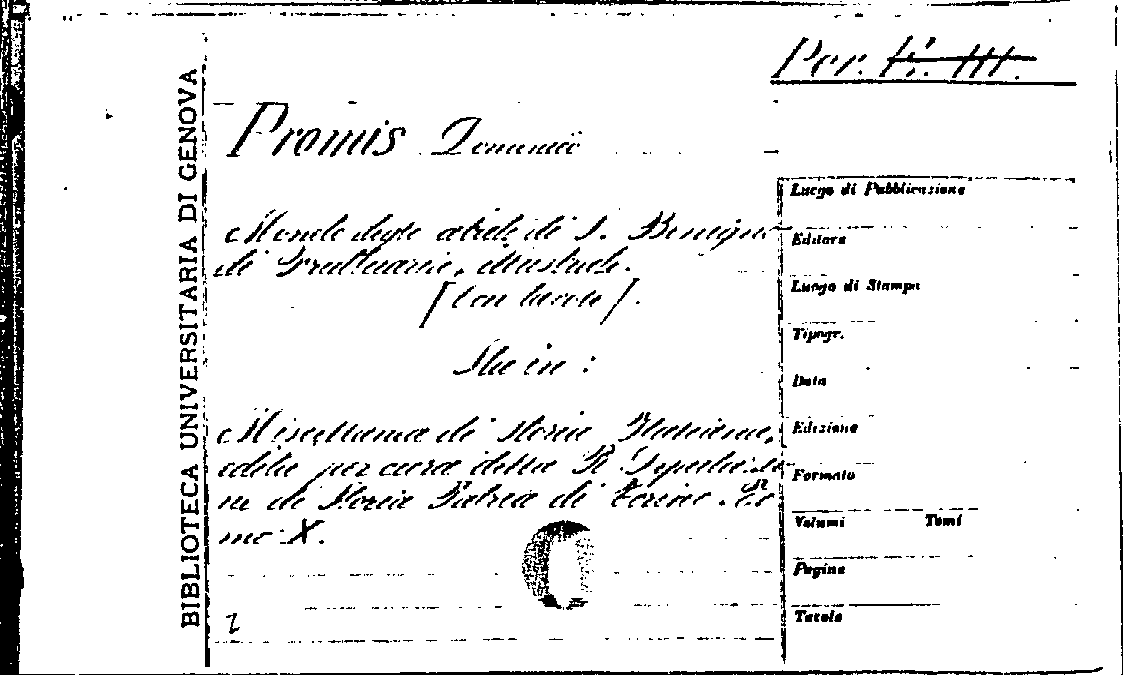 Per. E. III.
BIBLIOTECA UNIVERSITARIA DI GENOVA
Promis Domenico
Monete degli abati di S. Benigno
di Fruttuaria, illustrate.
[Con tavole].
Sta in :
Miscellanea di Storia Italiana,
edita per cura della R. Deputazio-
ne di Storia Patria di Torino. To
mo X.
2
Luogo di Pubblicazione
Editore
Luogo di Stampa
Tipogr.
Data
Edizione
Formato
Volumi Tomi
Pagine
Tavole